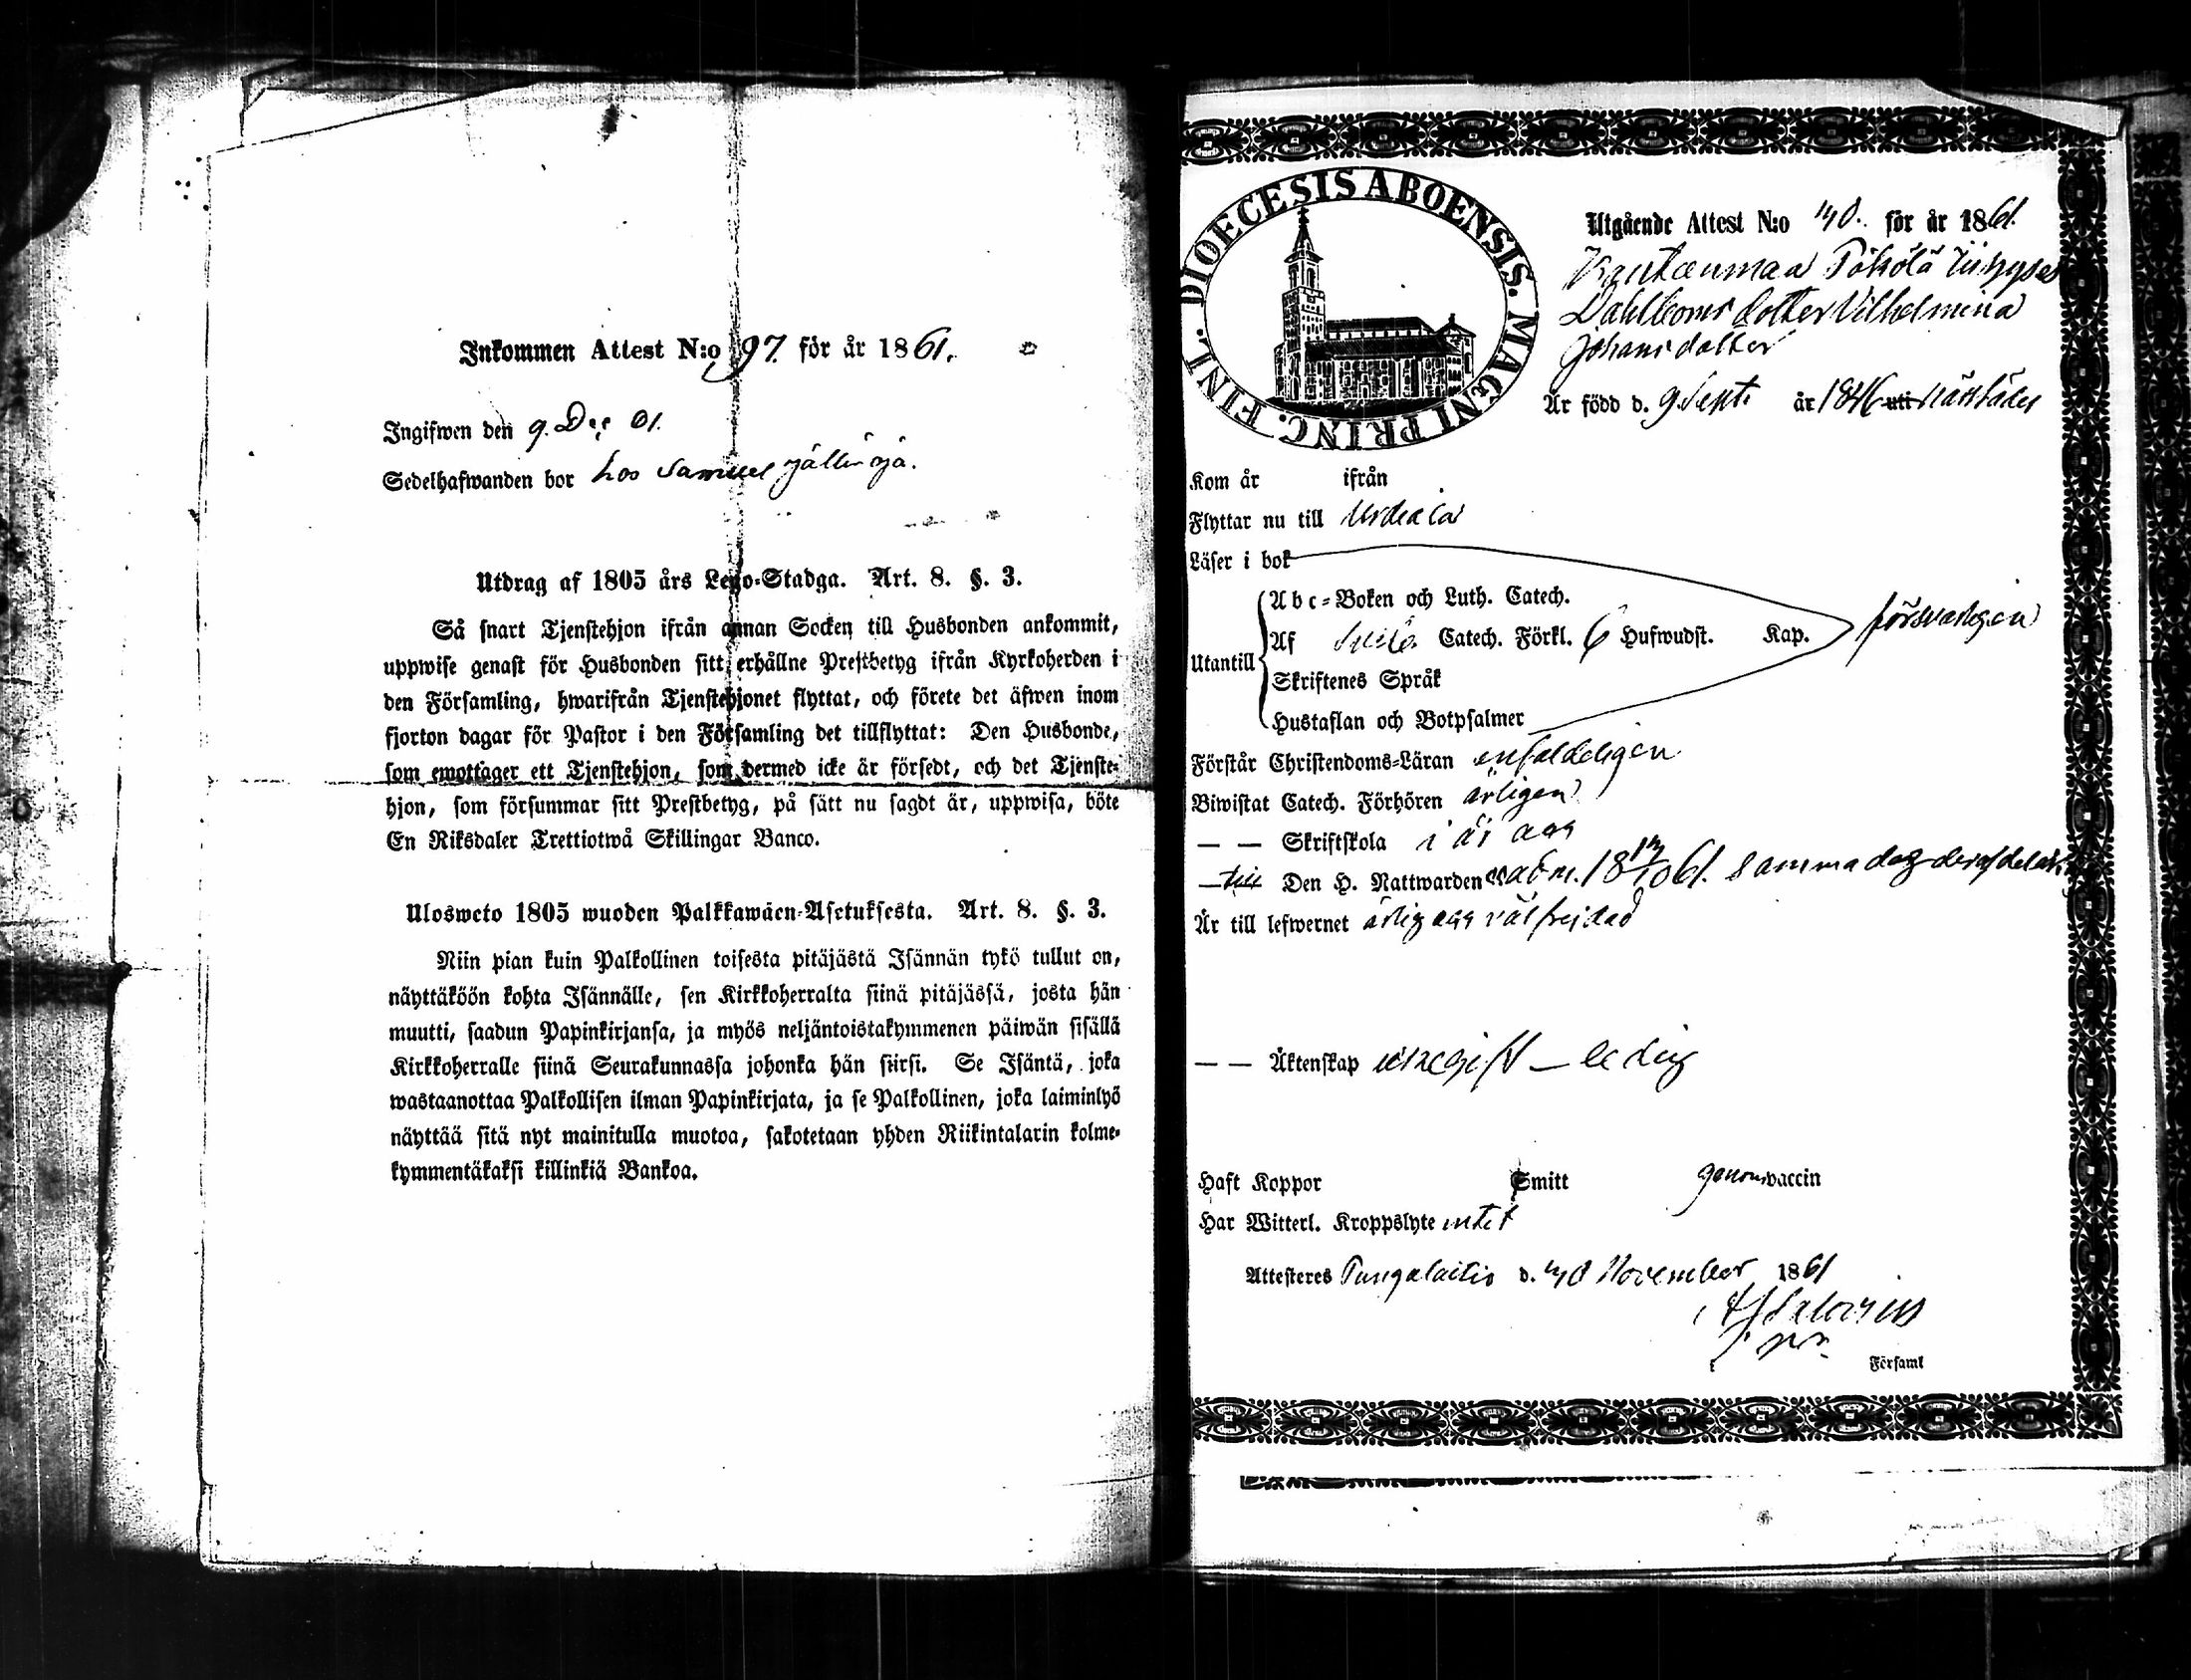 Inkommen Attest N:o 97. för år 1861.
Ingifwen den 9. Dec 61.
Sedelhafwanden bor hos Samuel
Utdrag af 1805 års Lego-Stadga. Art. 8. §. 3.
Så snart Tjenstehjon ifrån annan Socken till Husbonden ankommit,
uppwise genast för Husbonden sitt erhållne Prestbetyg ifrån Kyrkoherden i
den Församling, hwarifrån Tjenstehjonet flyttat, och förete det äfwen inom
fjorton dagar för Pastor i den Församling det tillflyttat: Den Husbonde,
som emottager ett Tjenstehjon, som dermed icke är försedt, och det Tjenste-
hjon, som försummar sitt Prestbetyg, på sätt nu sagdt är, uppwisa, böte
En Riksdaler Trettiotwå Skillingar Banco.
Ulosweto 1805 wuoden Palkkawäen-Asetuksesta. Art. 8. §. 3.
Niin pian kuin Palkollinen toisesta pitäjästä Isännän tykö tullut on,
näyttäköön kohta Isännälle, sen Kirkkoherralta siinä pitäjässä, josta hän
muutti, saadun Papinkirjansa, ja myös neljäntoistakymmenen päiwän sisällä
Kirkkoherralle siinä Seurakunnassa johonka hän siirsi. Se Isäntä, joka
wastaanottaa Palkollisen ilman Papinkirjata, ja se Palkollinen, joka laiminlyö
näyttää sitä nyt mainitulla muotoa, sakotetaan yhden Riikintalarin kolme-
kymmentäkaksi killinkiä Bankoa.
DIOECESIS ABOENSIS. MAGNI PRINC. FINL.
Utgående Attest N:o 40. för år 1861.
Kautanmaa
Dahlboms dotter Vilhelmina
Johansdotter
Är född d. 9 Sept. år 1846 uti
Kom år ifrån
Flyttar nu till Urdiala
Läser i bok
Abc-Boken och Luth. Catech.
Utantill Af Catech. Förkl. 6 Hufwudst. Kap. försvarligen
Skriftenes Språk
Hustaflan och Botpsalmer
Förstår Christendoms-Läran enfaldeligen
Biwistat Catech. Förhören årligen
— — Skriftskola i år
— till Den H. Nattwarden adm. 61. samma dag
Är till lefwernet ärlig och välfrejdad
— — Äktenskap icke gift — ledig
Haft Koppor Smitt genom vaccin
Har Witterl. Kroppslyte intet
Attesteres Pungalaitio d. 40 November 1861
Församl